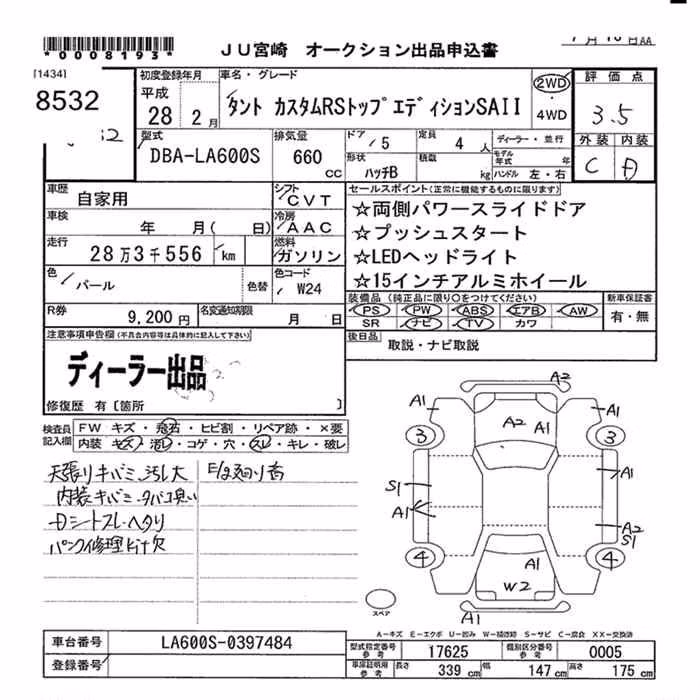 *0008193*
JU宮崎 オークション出品申込書
7月16日AA
[1434]
8532
初度登録年月
平成
28年 2月
車名・グレード
タント カスタムRSトップエディションSAII
2WD
・
4WD
評価点
3.5
外装 内装
C D
型式
DBA-LA600S
排気量
660 cc
ドア
5
定員
4 人
形状
ハッチB
積載
kg
ディーラー・並行
モデル年式 年
ハンドル 左・右
車歴
自家用
シフト
CVT
車検
年 月( 日)
冷房
AAC
走行
28万3千556 km
燃料
ガソリン
色
パール
色替
色コード
W24
R券
9,200円
名変通知期限
月 日
セールスポイント(正常に機能するものに限ります)
☆両側パワースライドドア
☆プッシュスタート
☆LEDヘッドライト
☆15インチアルミホイール
装備品 (純正品に限り○をつけてください)
PS PW ABS エアB AW
SR ナビ TV カワ
新車保証書
有・無
後日品
取説・ナビ取説
注意事項申告欄(不具合内容等は具体的に記入して下さい)
ディーラー出品
修復歴 有 [箇所 ]
検査員記入欄
FW キズ・飛石・ヒビ割・リペア跡・×要
内装 キズ・汚レ・コゲ・穴・スレ・キレ・破レ
天張りキバミ、汚レ大
内装キバミ・タバコ臭い
Dシートスレ・ヘタリ
パンク修理キット欠
E/g廻り音
A2
A1
A1
A2
A1
3
3
S1
A1
A1
A2
S1
4
4
A1
W2
A1
スペア
A-キズ E-エクボ U-凹み W-補修跡 S-サビ C-腐食 XX-交換済
車台番号
LA600S-0397484
登録番号
型式指定番号 参考
17625
類別区分番号 参考
0005
車庫証明用 参考
長さ 339 cm 幅 147 cm 高さ 175 cm